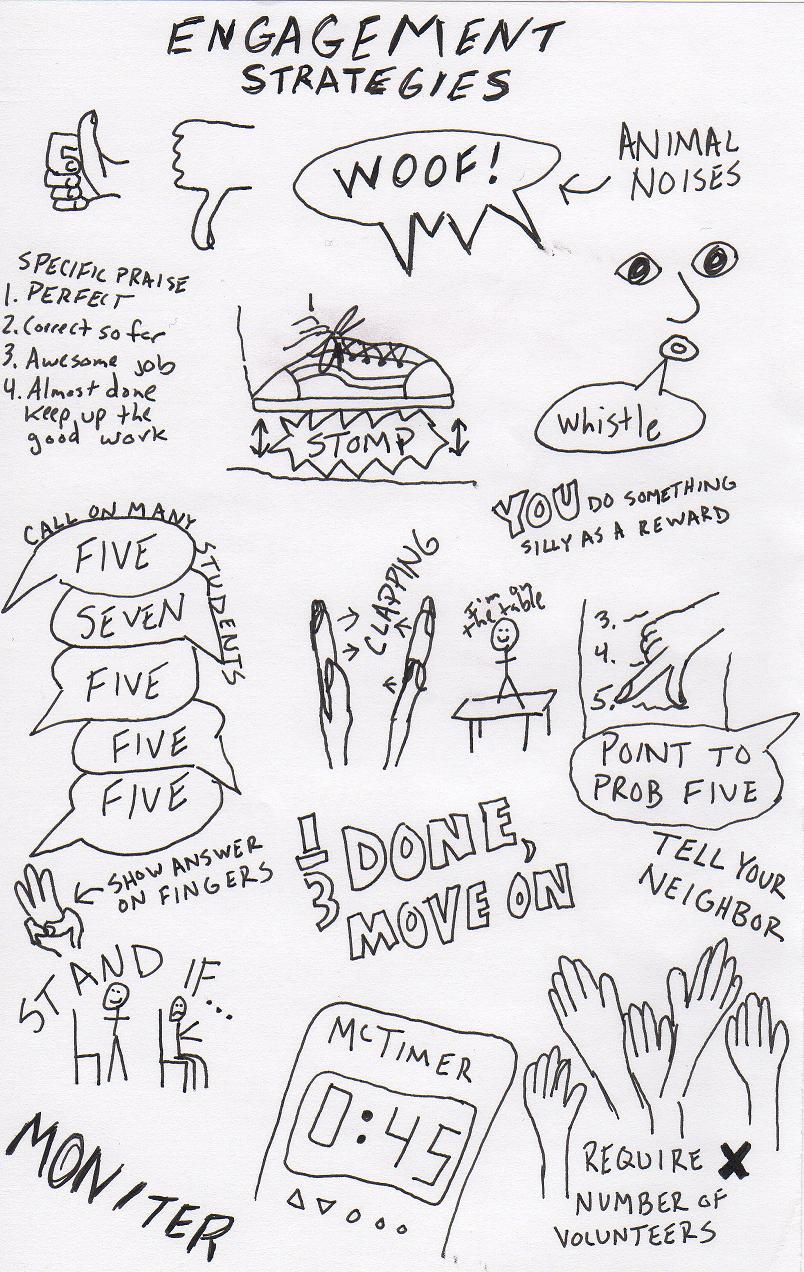 ENGAGEMENT
STRATEGIES
WOOF!
ANIMAL
NOISES
SPECIFIC PRAISE
1. PERFECT
2. Correct so far
3. Awesome job
4. Almost done
keep up the
good work
STOMP
whistle
YOU DO SOMETHING
SILLY AS A REWARD
CALL ON MANY
STUDENTS
FIVE
SEVEN
FIVE
FIVE
FIVE
CLAPPING
I'm on
the table
3.
4.
5.
POINT TO
PROB FIVE
TELL YOUR
NEIGHBOR
SHOW ANSWER
ON FINGERS
1/3 DONE,
MOVE ON
STAND IF...
MCTIMER
0:45
REQUIRE X
NUMBER OF
VOLUNTEERS
MONITER